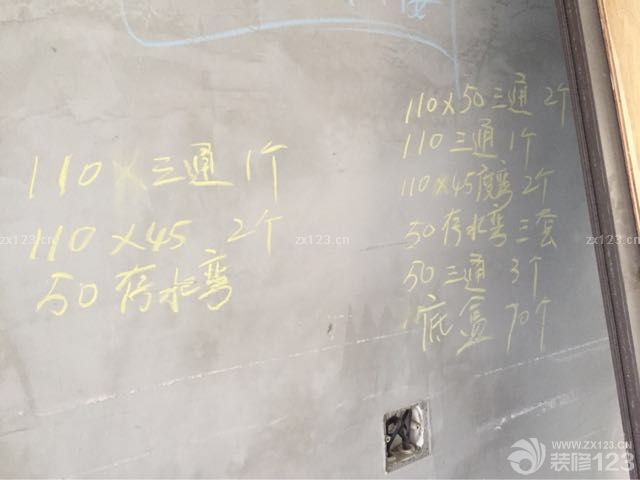 110 x 三通 1个
110 x 45 2个
50存水弯
110x50三通 2个
110三通 1个
110x45度弯 2个
50存水弯 三套
50三通 3个
底盒 70个
zx123.cn
zx123.cn
WWW.ZX123.CN
装修123